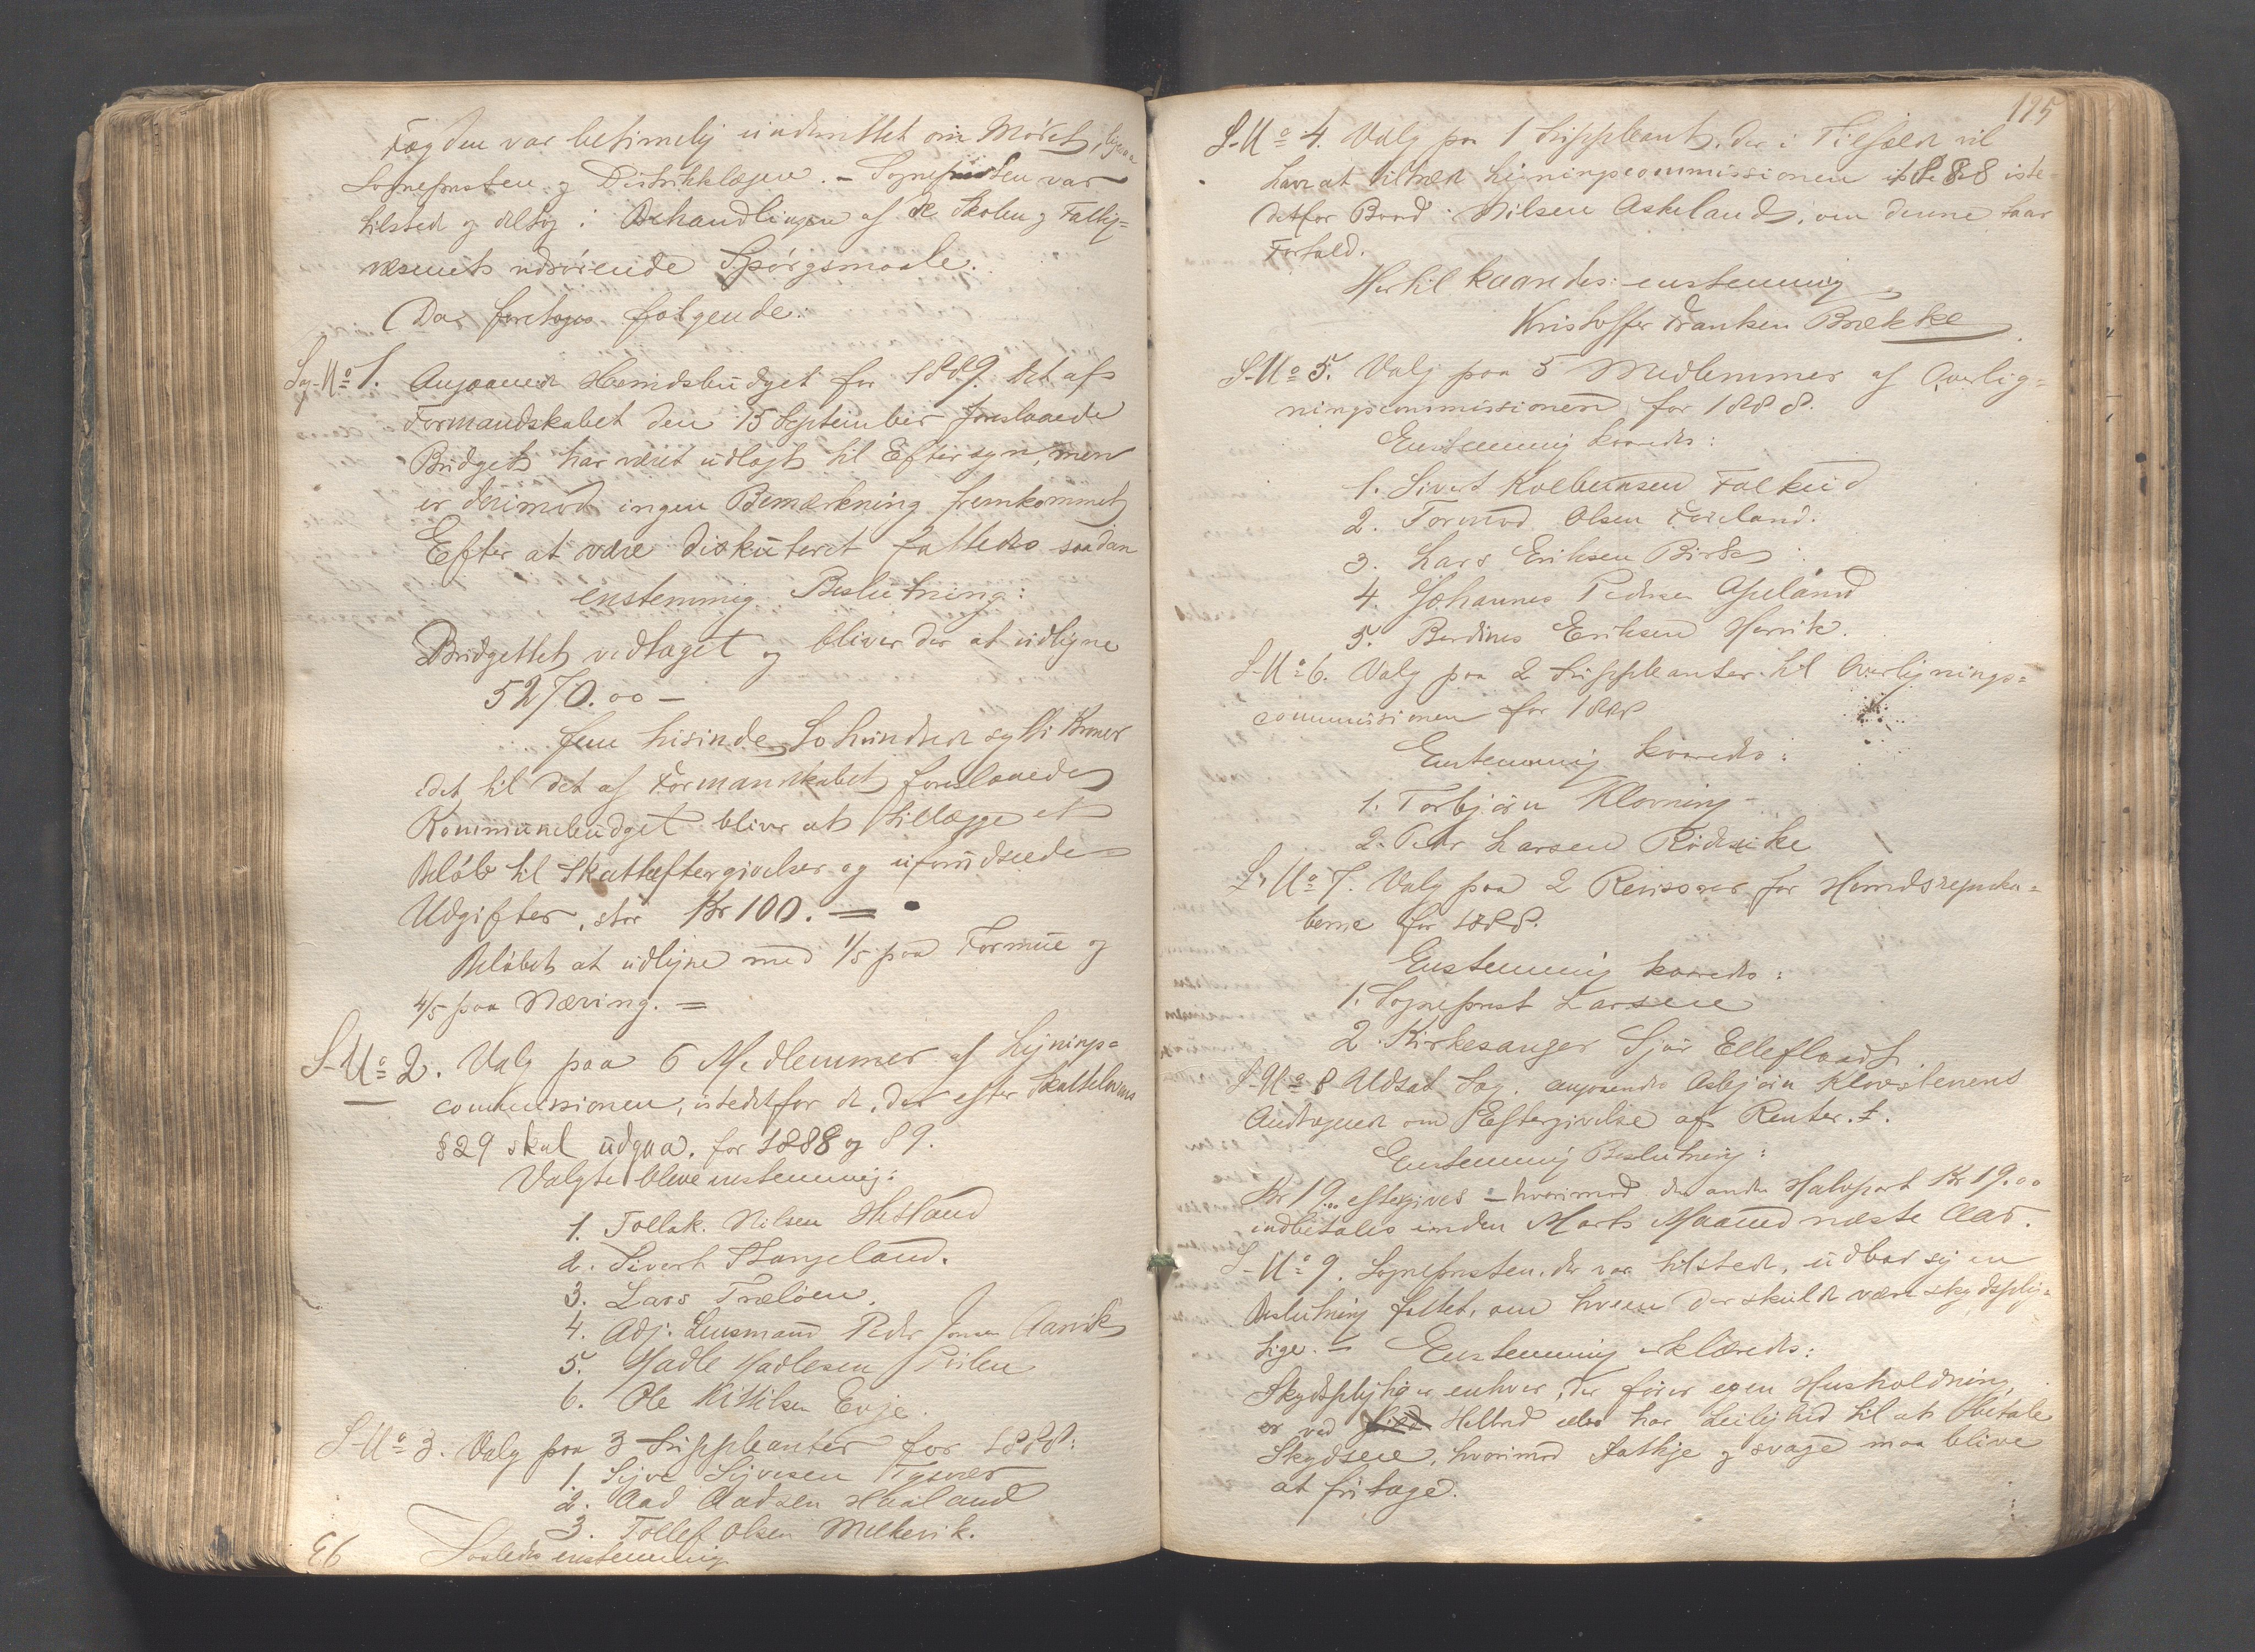 Fogden var betimelig underrettet om Mødet, ligesaa
Sognepresten og Distriktslægen. – Sognepresten var
tilstede og deltog i Behandlingen af de Skolen og Fattig=
væsenets vedrørende Spørgsmaale.
Da foretoges følgende:
Sag No 1. Angaaende Herredsbudget for 1889. Det af
Formandskabet den 15 September foreslaaede
Budget har været udlagt til Eftersyn, men
er derimod ingen Bemærkning fremkommet
Efter at være diskuteret fattedes saadan
enstemmig Beslutning:
Budgettet vedtaget og bliver der at udligne
5270.00 –
fem tusinde to hundrede sytti Kroner
idet til det af Formandskabet foreslaaede
Kommunebudget bliver at tillægge et
Beløb til Skatteeftergivelser og uforudseede
Udgifter, stor Kr 100. =
Beløbet at udligne med 1/5 paa Formue og
4/5 paa Næring. =
S-No 2. Valg paa 6 Medlemmer af Lignings=
commissionen, istedetfor de, der efter Skattelovens
§ 29 skal udgaa, for 1888 og 89.
Valgte bleve enstemmig:
1. Tollak Nilsen Hetland
2. Sivert Stangeland.
3. Lars Træloen.
4. Adj. Lensmand Peder Jonsen Aarvik
5. Hadle Hadlesen
6. Ole Kittilsen Evje.
S-No 3. Valg paa 3 Suppleanter for 1888:
1. Sjve Sjvesen Tysvær
2. Aad Aadsen Haaland
3. Tollef Olsen Melkevik.
Saaledes enstemmig
E6
195
S-No 4. Valg paa 1 Suppleant, der i Tilfælde vil
have at tiltræde Ligningscommissionen 1888 iste
detfor Baard Nilsen Askeland, om denne faar
Forfald.
Hertil kaaredes enstemmig
Kristoffer Frantsen Brække
S-No 5. Valg paa 5 Medlemmer af Overlig=
ningscommissionen for 1888.
Enstemmig kaaredes:
1. Sivert Kolbeinsen Falkeid
2. Tormod Olsen Føreland.
3. Lars Eriksen Birke
4. Johannes Pedersen Apeland
5. Berdines Eriksen Hervik.
S-No 6. Valg paa 2 Suppleanter til Overlignings=
commissionen for 1888
Enstemmig kaaredes:
1. Torbjørn Klovning
2. Peder Larsen Rødseike
S-No 7. Valg paa 2 Revisorer for Herredsregnska=
berne for 1888.
Enstemmig kaaredes:
1. Sogneprest Larsen
2. Kirkesanger Sjur Elleflaadt
S-No 8 Udsat Sag, angaaende Asbjørn Klovstenens
Andragende om Eftergivelse af Renter.
Enstemmig Beslutning:
Kr 19.00 eftergives – hvorimod den anden Halvpart Kr 19.00
indbetales inden Marts Maaned næste Aar.
S-No 9. Sognepresten, der var tilstede, udbad sig en
Beslutning fattet, om hvem der skulde være skydsplig=
tige. – Enstemmig erklæredes:
Skydspligtig er enhver, der fører egen Husholdning,
er ved Helbred eller har Leilighed til at betale
Skydsen, hvorimod Fattige og svage maa blive
at fritage.